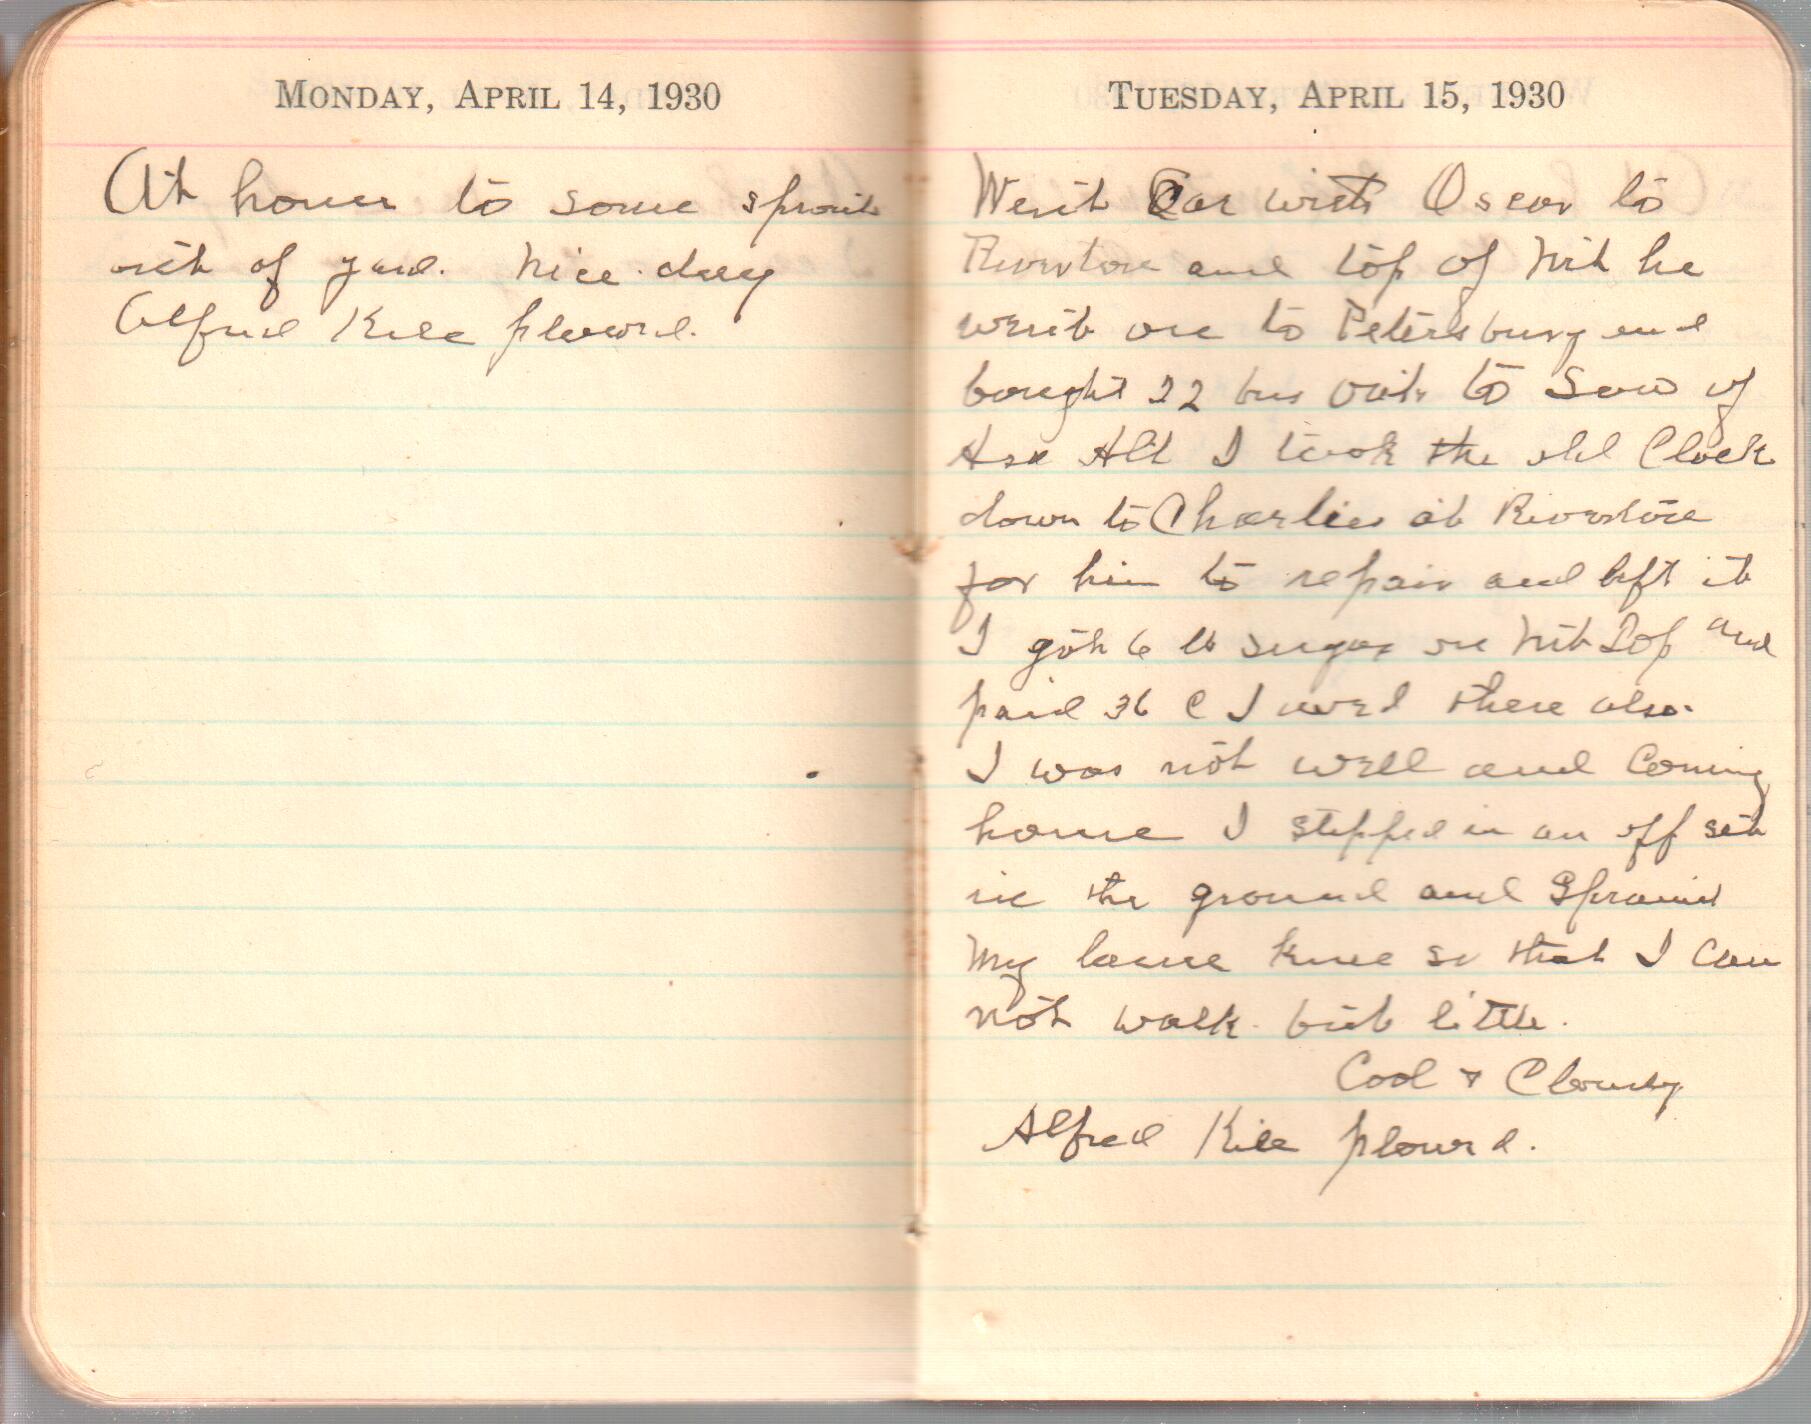 MONDAY, APRIL 14, 1930
At home to some sprouts
out of yard. Nice day
Alfred Kile plowed.
TUESDAY, APRIL 15, 1930
Went Car with Oscar to
Riverton and top of Mt he
went on to Petersburg and
bought 22 bus oats to sow of
Alt I took the old Clock
down to Charlies at Riverton
for him to repair and left it
I got 6 lb sugar on Mt Top and
paid 36 c I owed there also.
I was not well and coming
home I stepped in an off set
in the ground and Spraind
My lame knee so that I can
not walk but little.
Cool & Cloudy
Alfred Kile plowed.